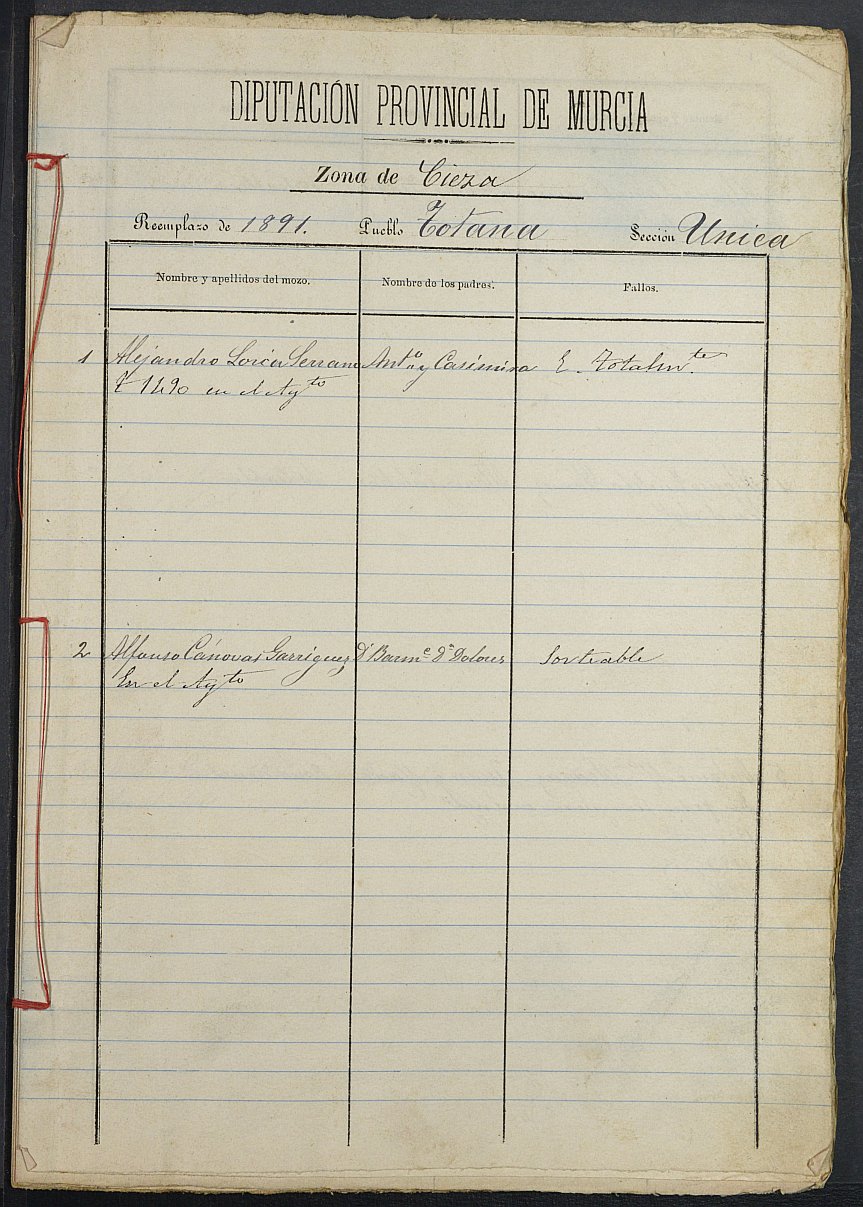 DIPUTACIÓN PROVINCIAL DE MURCIA
Zona de Cieza
Reemplazo de 1891. Pueblo Totana Sección Unica
Nombre y apellidos del mozo. Nombre de los padres. Fallos.
1 Alejandro Lorca Serrano Antº y Casimira E. Totalmte
en el Aytº
2 Alfonso Cánovas Garriguez Dn Barme Dª Dolores Sorteable
En el Aytº